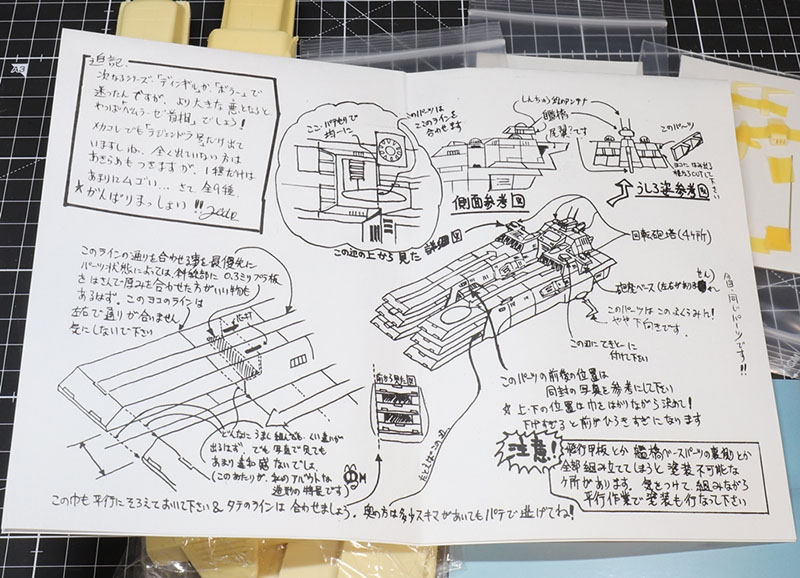 追記.
次なるシリーズ、「ディンギル」か、「ボラー」で
迷ったんですが、より大きな悪となると、
やっぱ「ベムラーゼ首相」でしょう!
メカコレでも「ラジェンドラ号」だけ出て
いますしね、全く出ていない方は
あきらめもつきますが、1種だけは
あまりにムゴい… さて全9種、
★がんばりまっしょい!!
ここ、パネもりで
均一に
このパーツは
ここのラインを
合わせます
この辺の上から見た詳細図
しんちゅう線のアンテナ
艦橋
尾翼?です
側面参考図
このパーツ
ヨコにはみ出
うしろ姿参考図
回転砲塔(4ヶ所)
砲塔ベース(左右があります
全員同じパーツです!!
このパーツはこのふくらみに
やや下向きです.
この辺にてきとーに
付けて下さい
このラインの通りを合わせる事を最優先に
パーツ状態によっては、斜線部に0.3ミリプラ板
をはさんで厚みを合わせた方がいい物も
あるはず。このヨコのラインは
左右で通りが合いません
気にしないで下さい
前から見た図
このパーツの前後の位置は
同封の写真を参考にして下さい
★上・下の位置は巾をはかりながら決めて!
下げすぎると前がひらきすぎになります
どんなにうまく組んでも、くい違いが
出るはず。でも写真で見ても
あまり違和感ないでしょ
(このあたりが、私のアバウトな
造形の特長です)
注意!
飛行甲板とか艦橋ベースパーツの裏側とか
全部組み立ててしまうと塗装不可能な
ヶ所があります。気をつけて、組みながら
平行作業で塗装も行なって下さい
この巾も平行にそろえておいて下さい & タテのラインは合わせましょう. 奥の方は多少スキマがあいてもパテで逃げてね!
A3